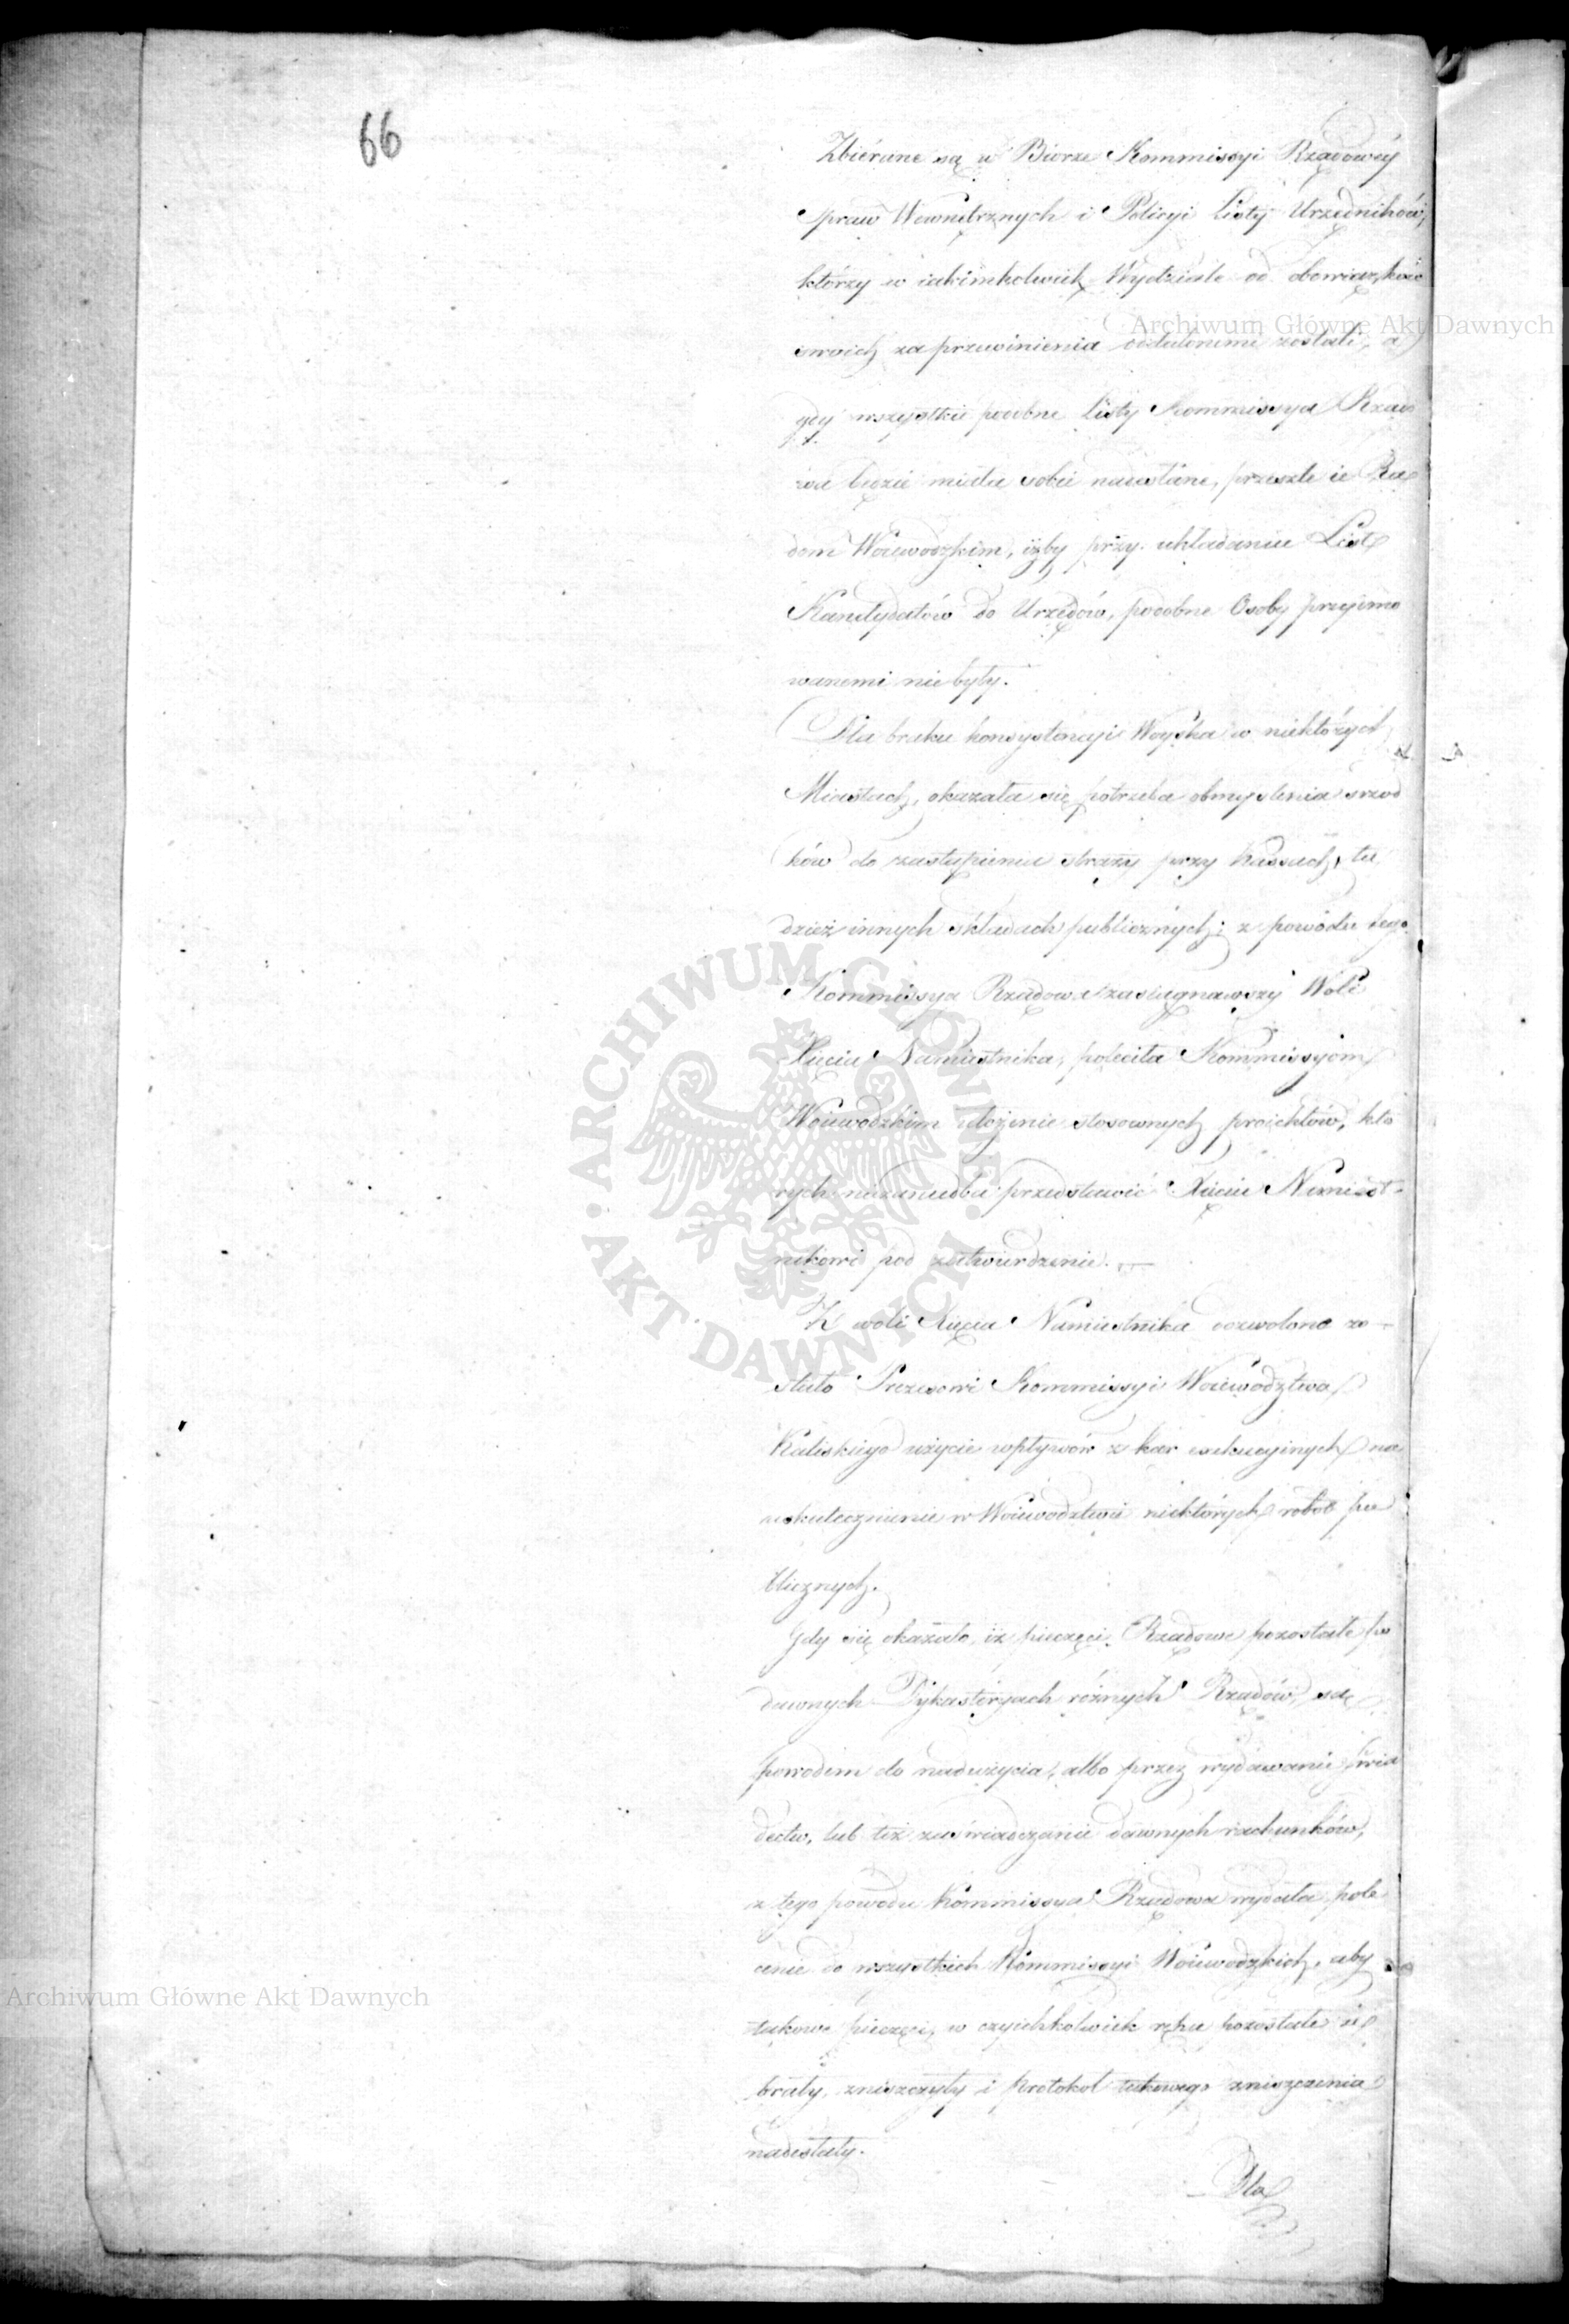 66
Zbiérane są w Biórze Kommissyi Rządowéy
spraw Wewnętrznych i Policyi Listy Urzędników,
którzy w iakimkolwiek Wydziale od obowiązków
swoich za przewinienia oddalonemi zostali, a
gdy wszystkie podobne Listy Kommissya Rządo
wa będzie miała sobie nadesłane, przeszle ie Ra
dom Woiewodzkim, iżby przy układaniu List
Kandydatów do Urzędów, podobne Osoby przyimo
wanemi nie były.
Dla braku konsystencyi Woyska w niektórych
Miastach, okazała się potrzeba obmyslenia srzod
ków do zastąpienia straży przy Kassach, tu
dzież innych składach publicznych; z powodu tego
Kommissya Rządowa zasiągnąwszy Woli
Xięcia Namiestnika, poleciła Kommissyiom
Woiewodzkim ułożenie stosownych proiektów, któ
rych niezaniedba przedstawić Xięciu Namiest-
nikowi pod zatwierdzenie. —
Z woli Xięcia Namiestnika dozwolono zo-
stało Prezesowi Kommissyi Woiewództwa
Kaliskiego użycie wpływów z kar exekucyinych na
uskutecznienie w Woiewództwie niektórych robot pu
blicznych.
Gdy się okazało, iż pieczęci Rządowe pozostałe po
dawnych Dykasteryach różnych Rządów, są
powodem do nadużycia, albo przez wydawanie świa
dectw, lub też zaświadczanie dawnych rachunków,
z tego powodu Kommissya Rządowa wydała pole
cenie do wszystkich Kommissyi Woiewodzkich, aby
takowe pieczęci, w czyichkolwiek ręku pozostałe ze
brały, zniszczyły i protokół takowego zniszczenia
nadesłały.
Dla
Archiwum Główne Akt Dawnych
ARCHIWUM GŁÓWNE · AKT DAWNYCH ·
Archiwum Główne Akt Dawnych